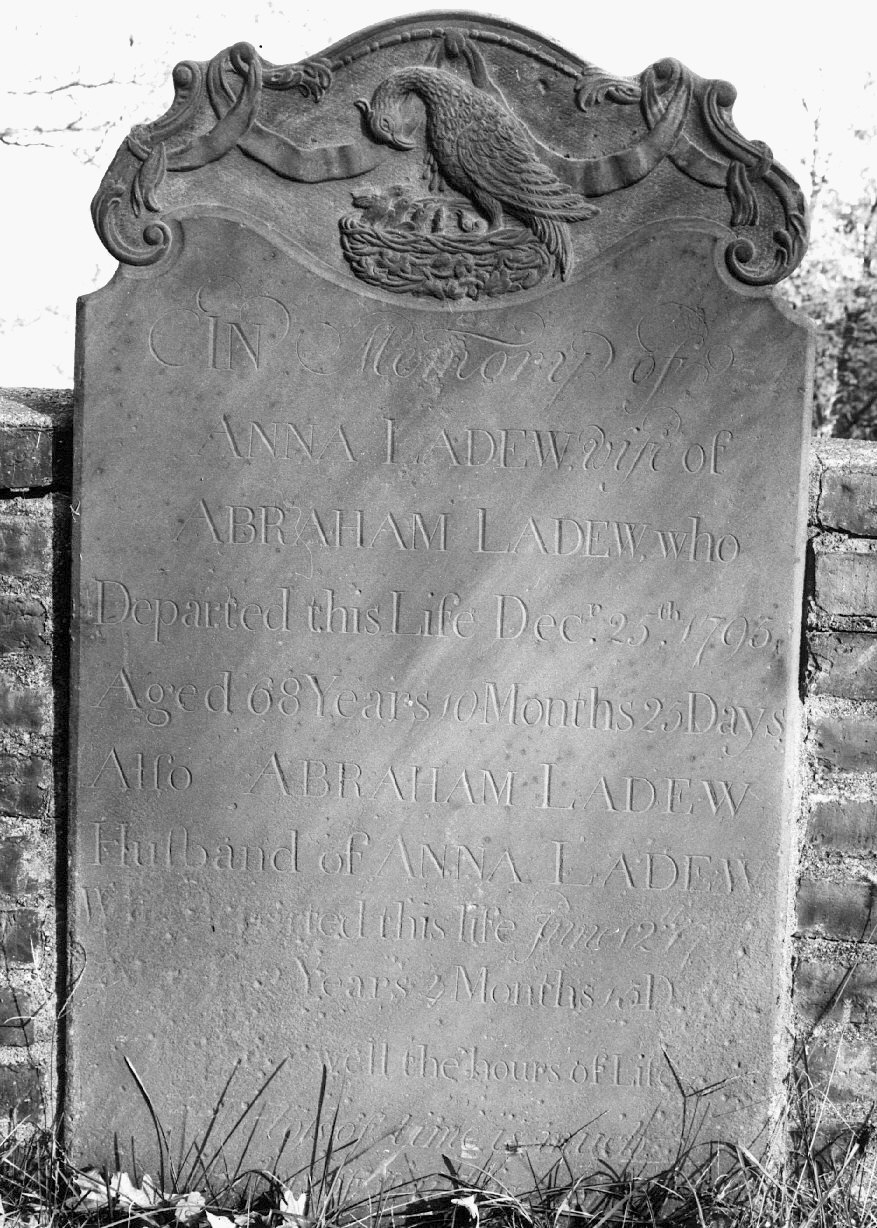 IN Memory of
ANNA LADEW, wife of
ABRAHAM LADEW, who
Departed this Life Decr. 25th. 1795,
Aged 68 Years 10 Months 25 Days
Alſo ABRAHAM LADEW
Huſband of ANNA LADEW
departed this life June 12th
Years 2 Months 15 D
well the hours of Life
time is much